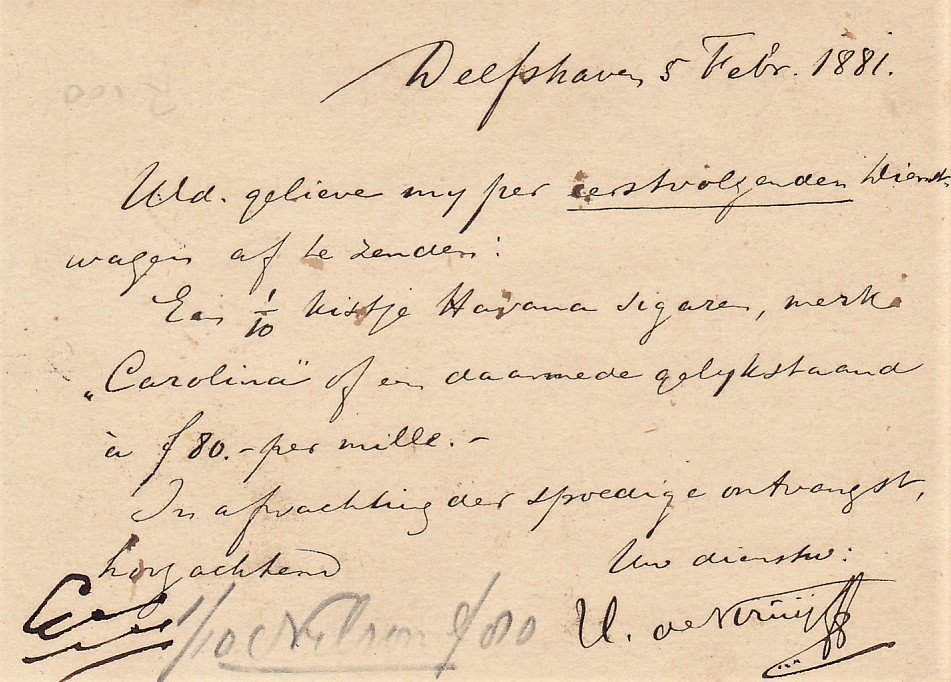 Delfshaven 5 Febr. 1881.
UEd. gelieve my per eerstvolgenden Dienst-
wagen af te zenden:
Een 1/10 kistje Havana sigaren, merk
„Carolina" of een daarmede gelykstaand
à ƒ 80.- per mille.-
In afwachting der spoedige ontvangst,
hoogachtend Uw dienstw:
1/10 Nelson ƒ 80 U. de Kruijff